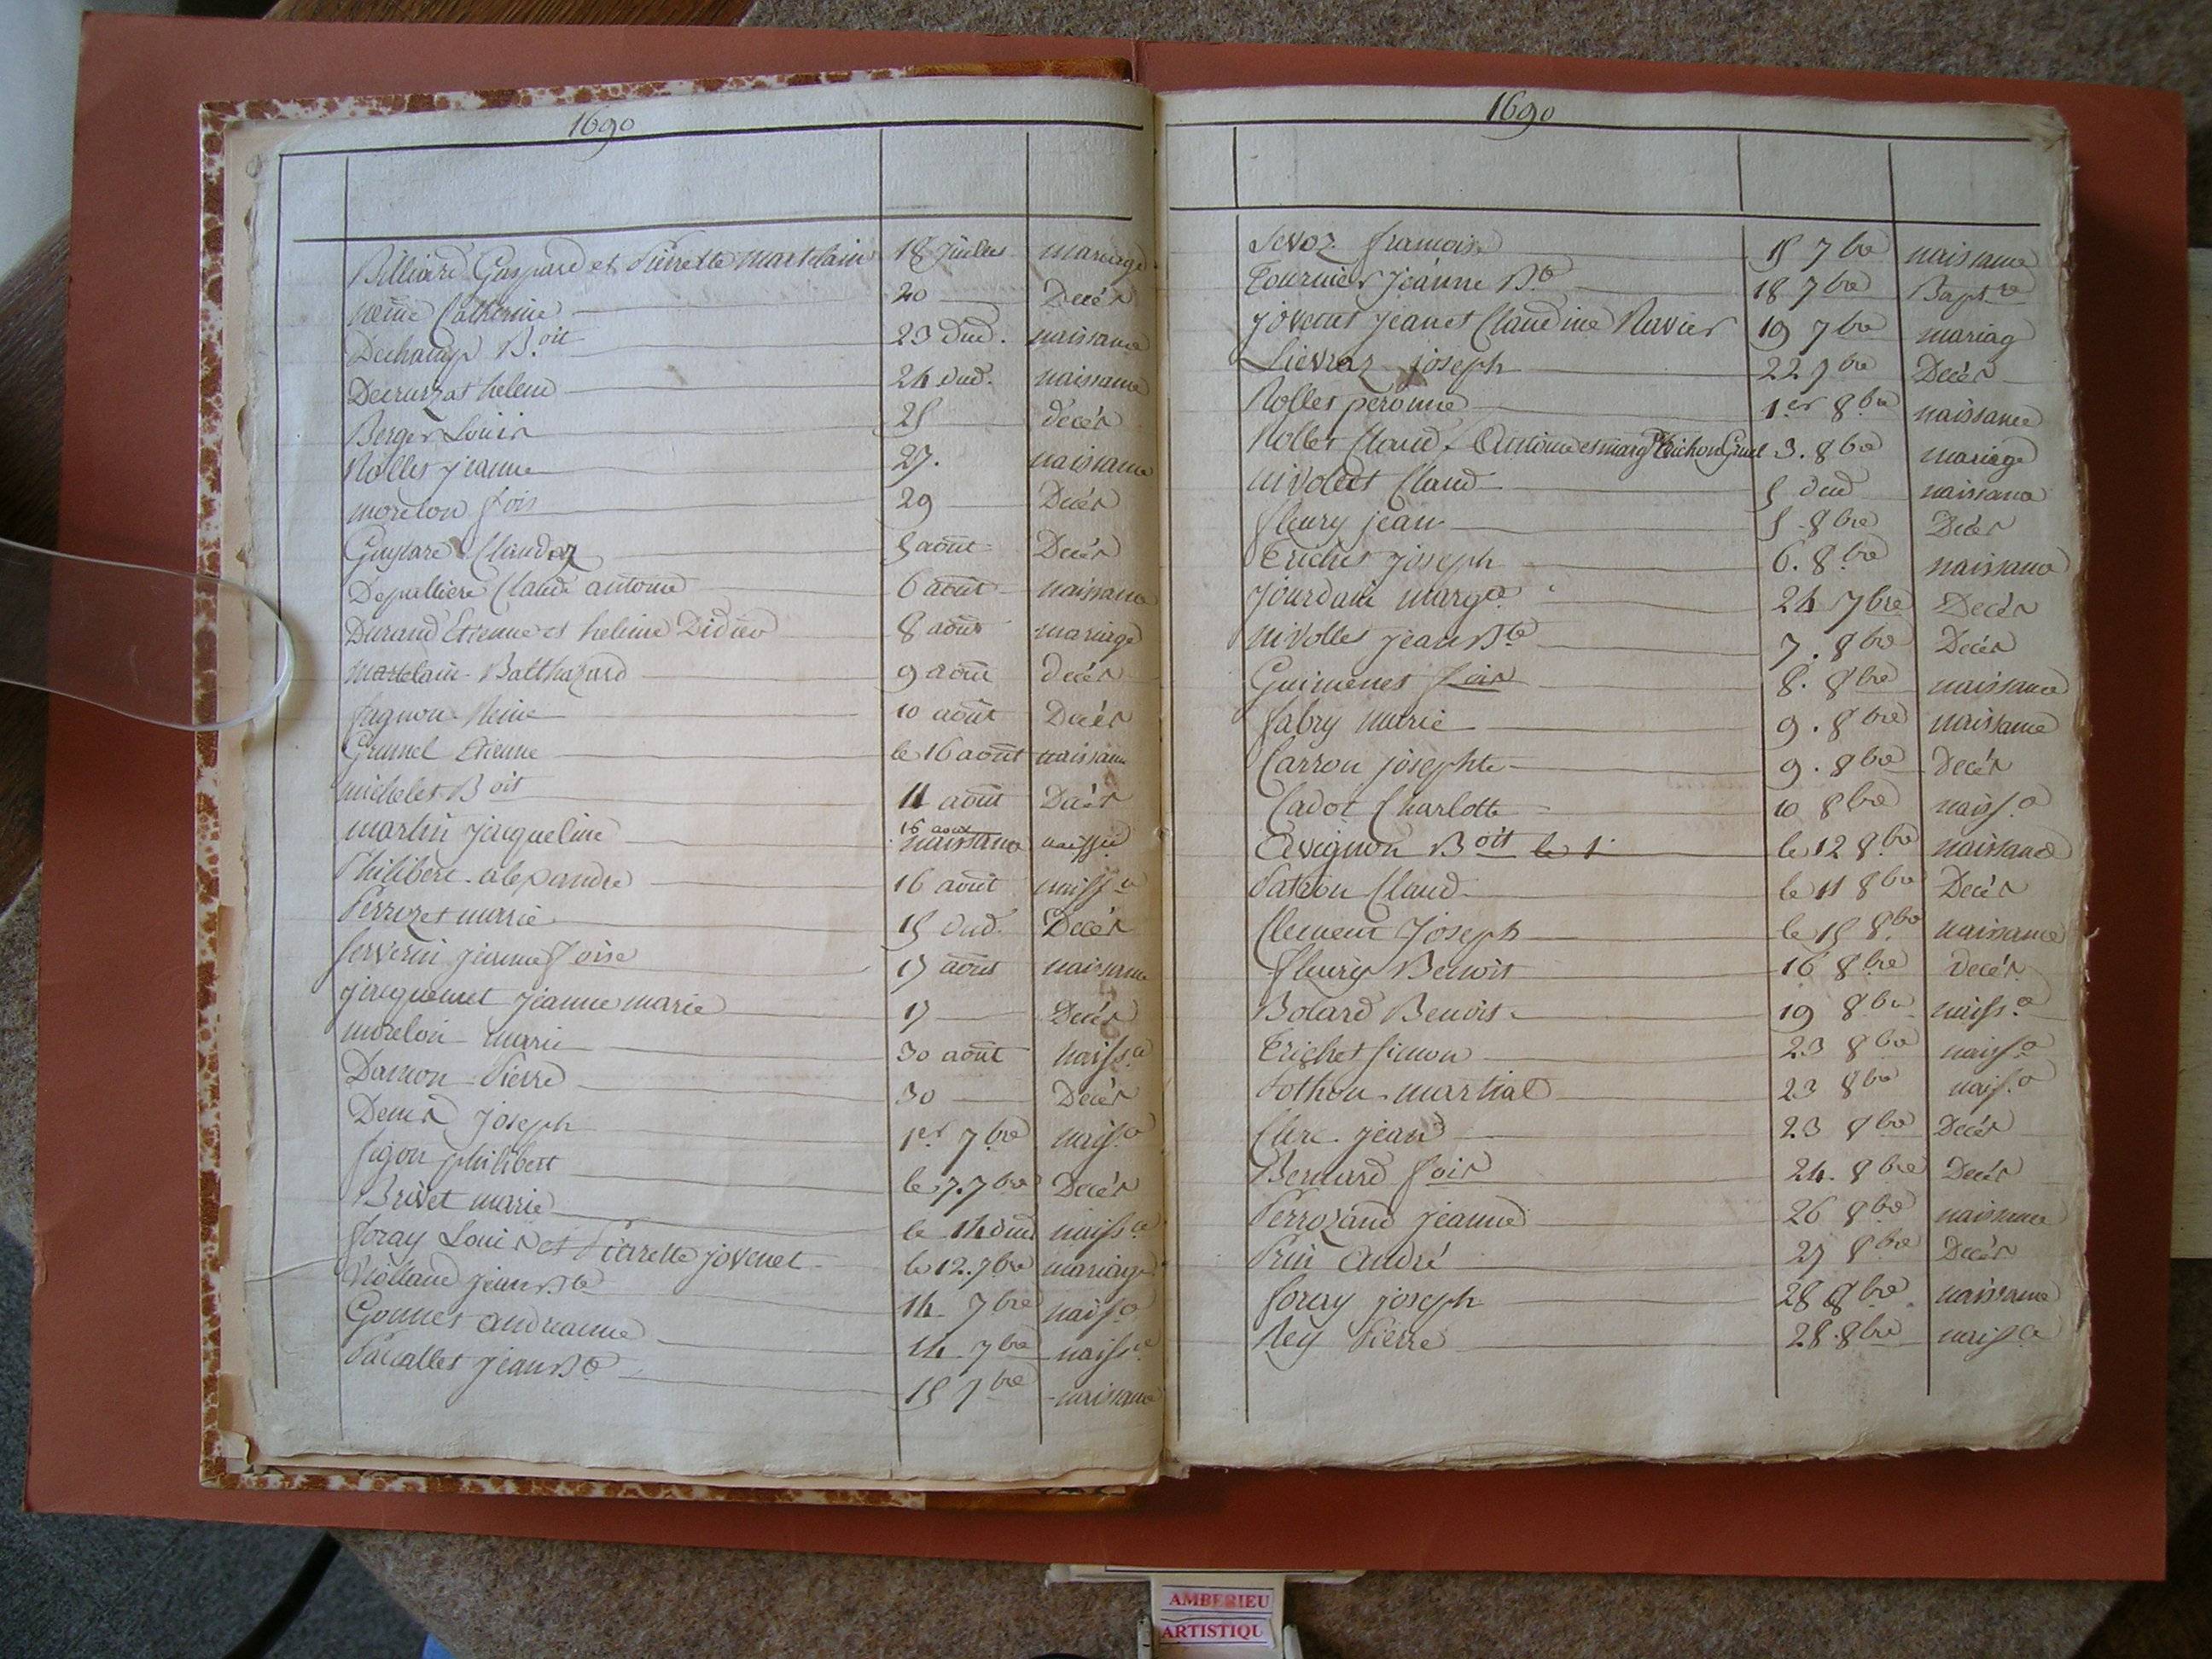 1690
Billiard Gaspard et Pierrette martelain 18 Juillet mariage
Catherine 20 Decés
Dechamp B.oit 23 dud. naissance
Decruzat helene 24 dud. naissance
Berger Louis 25 décés
Rollet jeanne 27. naissance
morelon fois 29 Decés
Guynard Claudaz 5 aout Decés
Depallière Claude antoine 6 aout naissance
Durand Etienne et heleine Didier 8 aout mariage
martelain Balthazard 9 aout decés
fagnon Reine 10 aout Decés
Grumel Etienne le 16 aout naissance
michelet B oit 11 aout Decés
martin jacqueline 16 aout naissance
Philibert alexandre 16 aout naiss.ce
Perrozet marie 15 dud. Decés
Serverin jeanne foise 17 aout naissance
jacquemet jeanne marie 17 Decés
morelon marie 30 aout naiss.ce
Damon Pierre 30 Decés
Denis joseph 1er 7bre naiss.ce
figon philibert le 7. 7bre Decés
Brivet marie le 14 dud naiss.ce
foray Louis et Pierrette jovenet le 12. 7bre mariage
Violland jean B.te 14 7bre naiss.ce
Gonnet andreanne 14 7bre naiss.ce
Pacallet jean B.te 15 7bre naissance
1690
Sevoz francoise 15 7bre naissance
Tournier Jeanne B.te 18 7bre Bapt.re
jovenet jean et Claudine Ravier 19 7bre mariag
Lievraz joseph 22 7bre Decés
Rollet peronne 1er 8bre naissance
Rollet Claud. Antoine et marg.te Trichon Grumel 3. 8bre mariage
nivolet Claud 5 dud naissance
fleury jean 5 8bre Decés
Trichet joseph 6. 8bre naissance
Jourdain marg.te 24 7bre Decés
nivollet jean B.te 7. 8bre Decés
Guimenet fois 8. 8bre naissance
fabry marie 9. 8bre naissance
Carron josephte 9. 8bre Decés
Cadot Charlotte 10 8bre naiss.ce
Avignon B oit le 1 le 12 8bre naissance
Patron Claud le 11 8bre Decés
Clement Joseph le 15 8bre naissance
fleury Benoit 16 8bre decés
Bolard Benoit 19 8bre naiss.ce
Trichet simon 23 8bre naiss.ce
Pothon martial 23 8bre naiss.ce
Clerc jean 23 8bre Decés
Bernard fois 24. 8bre Decés
Perrozand jeanne 26 8bre naissance
Prin André 27 8bre Decés
foray joseph 28 8bre naissance
Rey Pierre 28. 8bre naiss.ce
AMBERIEU
ARTISTIQU